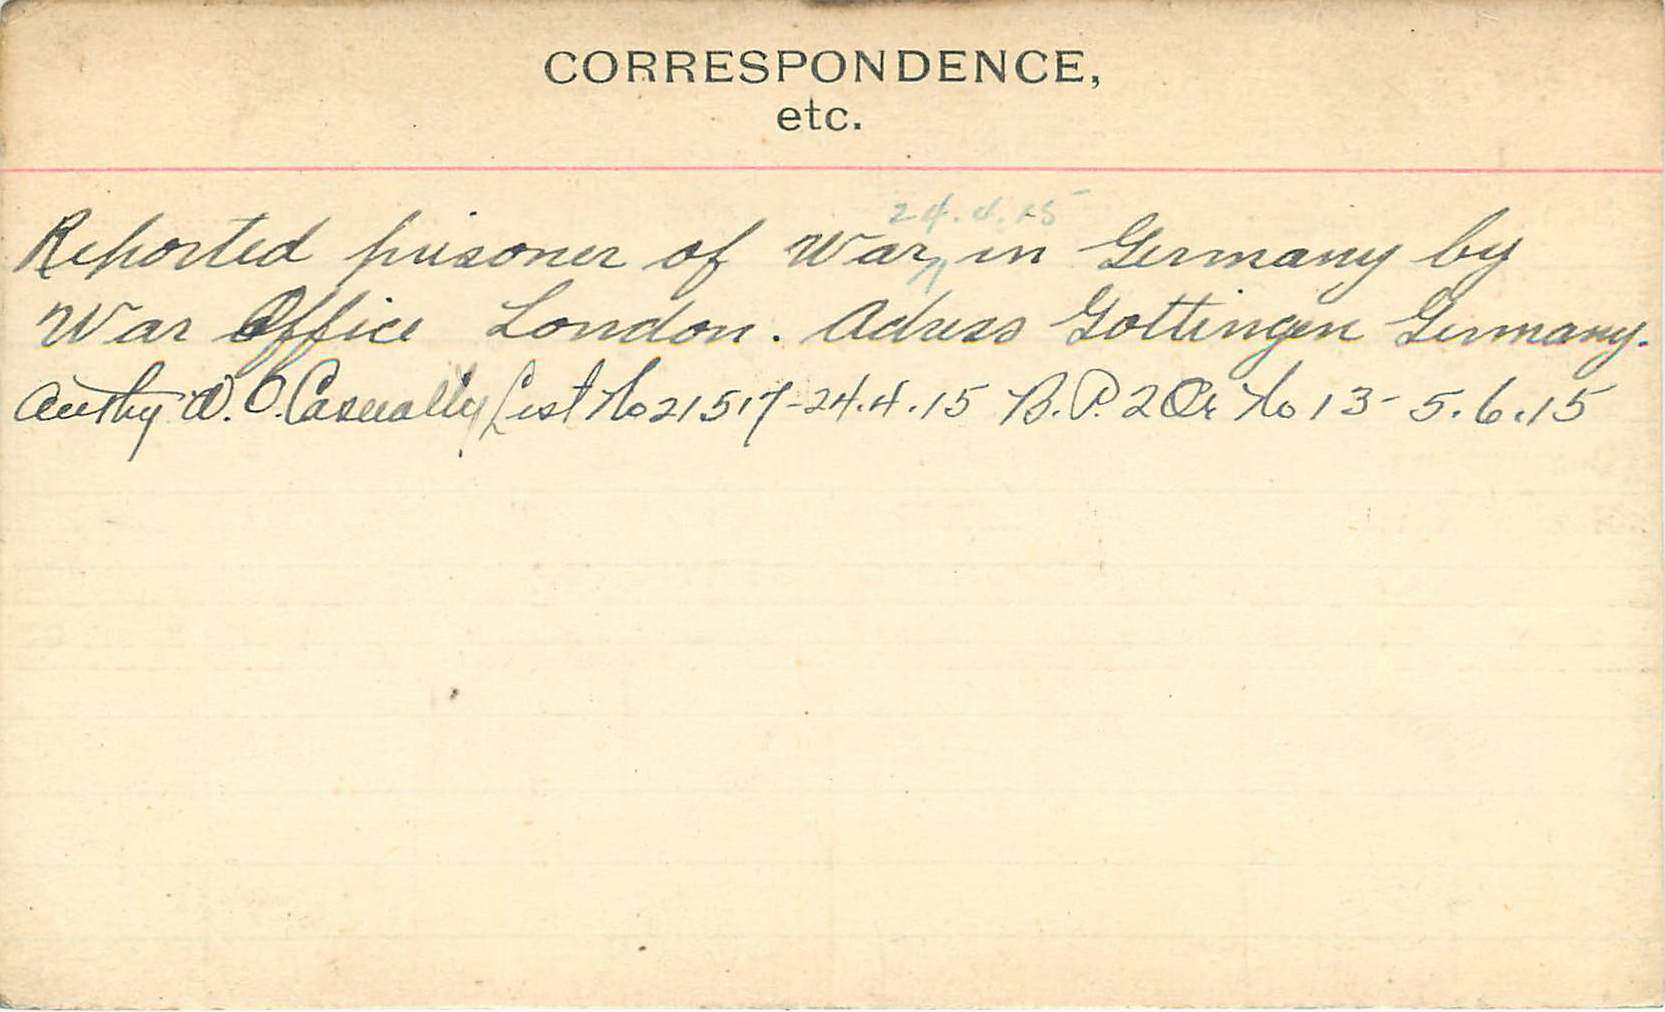 CORRESPONDENCE,
etc.
24.4.15
Reported prisoner of War, in Germany by
War Office London. Adress Gottingen Germany.
Authy O. Casualty List No 21517-24.4.15 B.P. 2 Or No 13-5.6.15